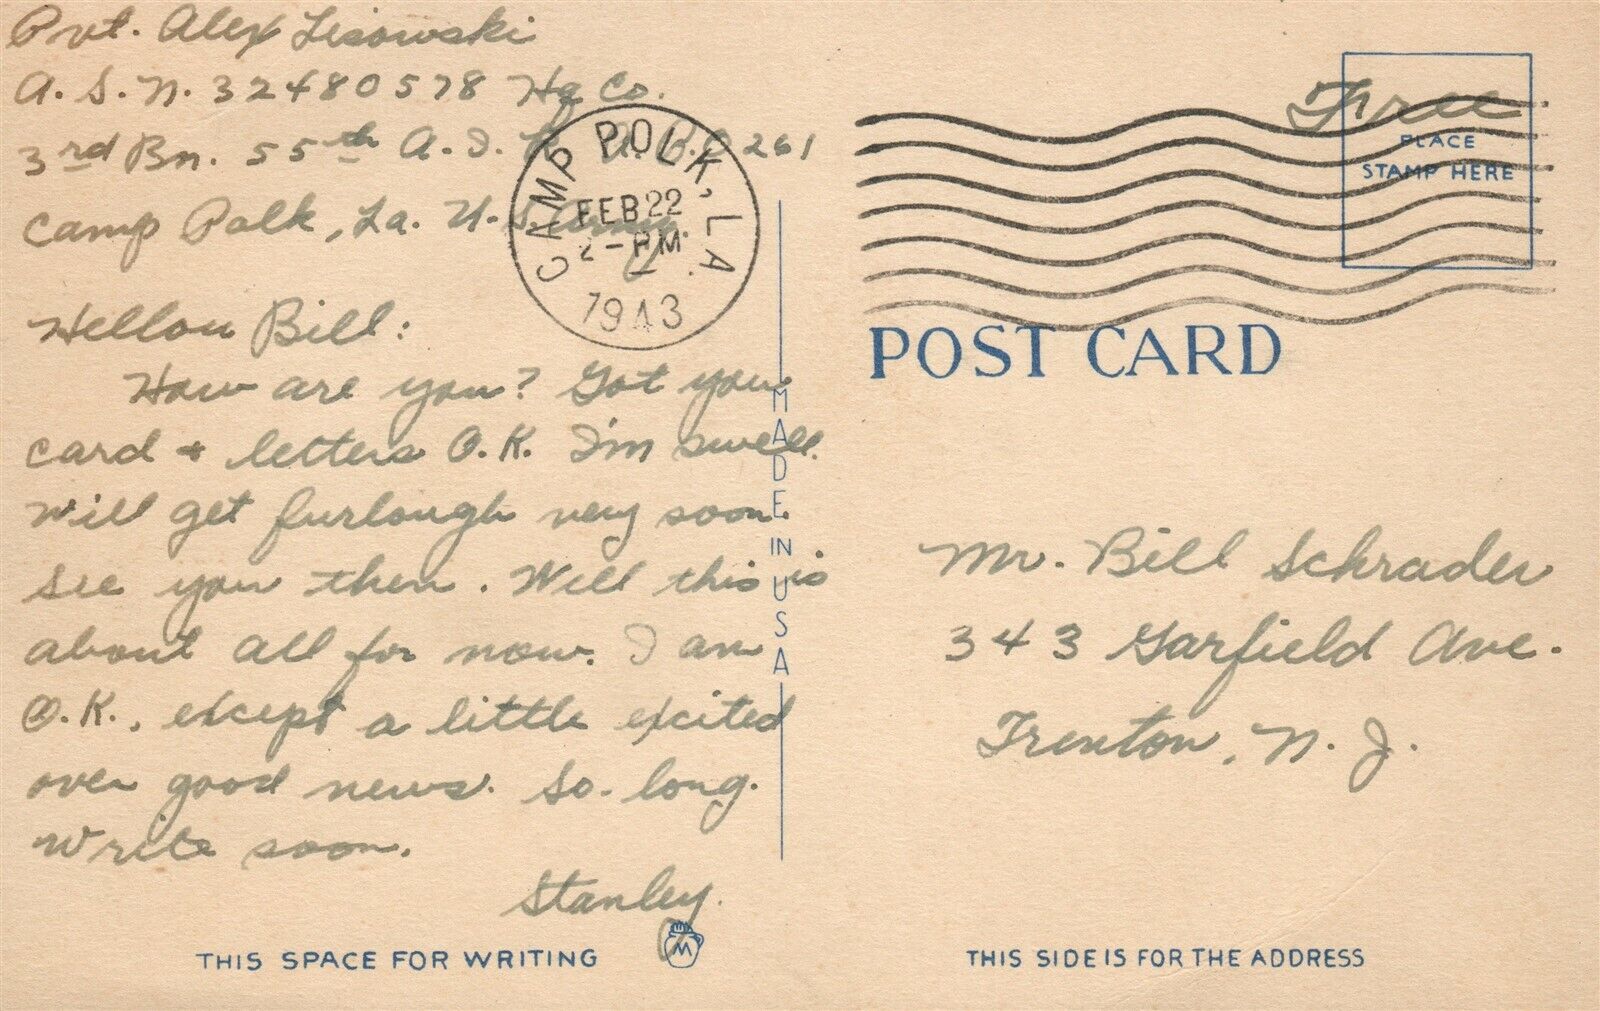 Pvt. Alex Lisowski
A.S.N. 32480578 Hq Co.
3rd Bn. 55th A.I. 261
Camp Polk, La. U.S. Army
CAMP POLK, LA.
FEB 22
2-PM
1943
Free
PLACE
STAMP HERE
POST CARD
Hellou Bill:
How are you? Got your
card + letters O.K. I'm swell.
Will get furlough very soon.
See you then. Well this is
about all for now. I am
O.K., except a little excited
over good news. So-long.
Write soon.
Stanley.
MADE IN USA
Mr. Bill Schrader
343 Garfield Ave.
Trenton, N.J.
M
THIS SPACE FOR WRITING
THIS SIDE IS FOR THE ADDRESS